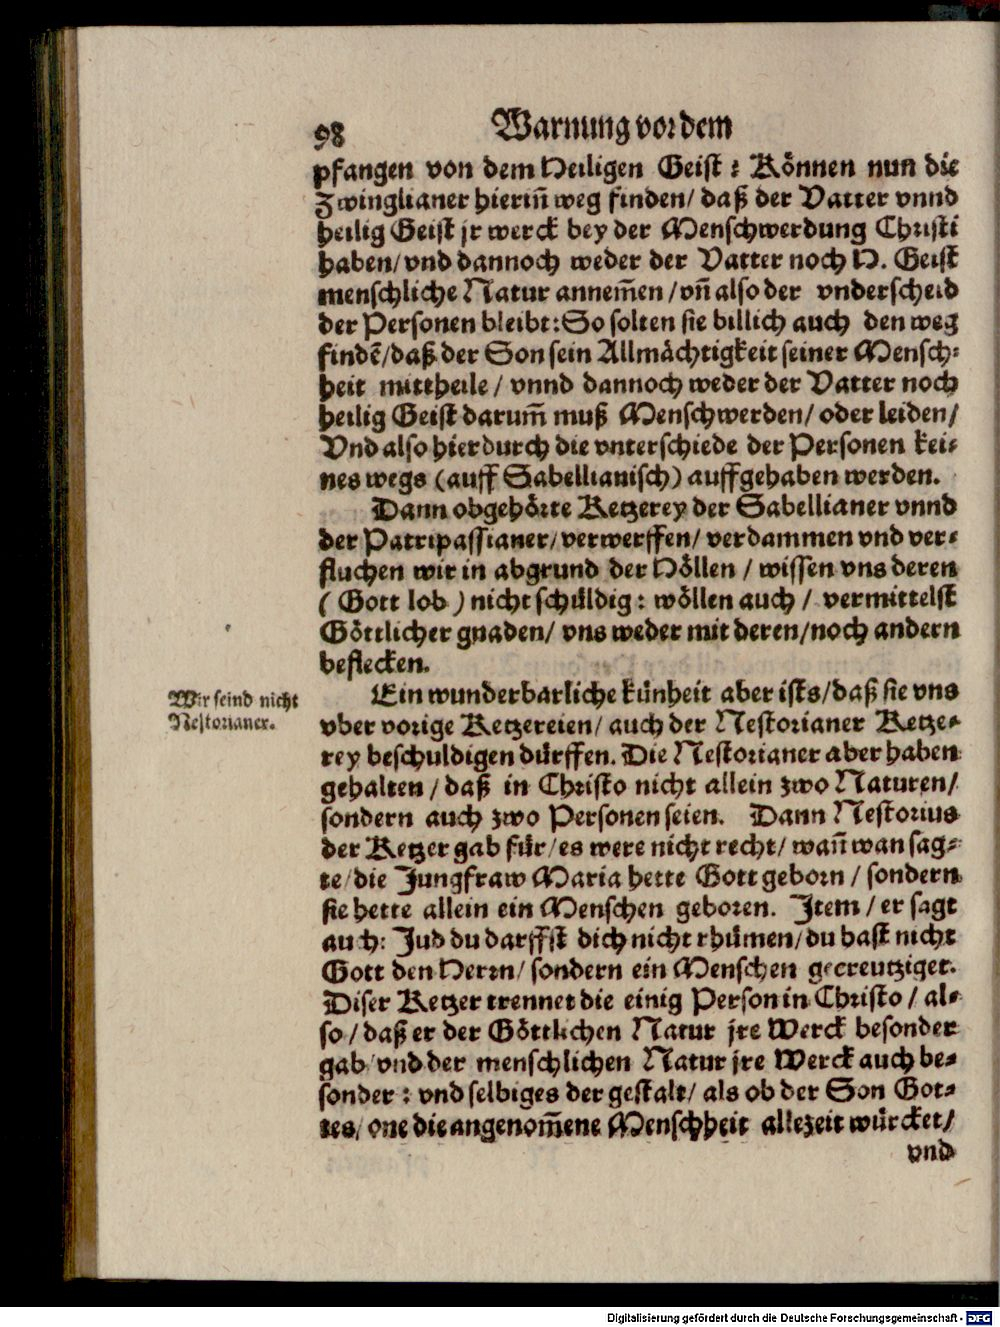 98 Warnung vor dem
pfangen von dem Heiligen Geist: Können nun die
Zwinglianer hieriñ weg finden/ daß der Vatter vnnd
heilig Geist jr werck bey der Menschwerdung Christi
haben/ vnd dannoch weder der Vatter noch H. Geist
menschliche Natur annem̃en/ vñ also der vnderscheid
der Personen bleibt: So solten sie billich auch den weg
findẽ/ daß der Son sein Allmächtigkeit seiner Mensch-
heit mittheile/ vnnd dannoch weder der Vatter noch
heilig Geist darum̃ muß Menschwerden/ oder leiden/
Vnd also hierdurch die vnterschiede der Personen kei-
nes wegs (auff Sabellianisch) auffgehaben werden.
Dann obgehörte Ketzerey der Sabellianer vnnd
der Patripassianer/ verwerffen/ verdammen vnd ver-
fluchen wir in abgrund der Höllen/ wissen vns deren
(Gott lob) nicht schüldig: wöllen auch/ vermittelst
Göttlicher gnaden/ vns weder mit deren/ noch andern
beflecken.
Wir seind nicht
Nestorianer.
Ein wunderbarliche künheit aber ists/ daß sie vns
vber vorige Ketzereien/ auch der Nestorianer Ketze-
rey beschuldigen dürffen. Die Nestorianer aber haben
gehalten/ daß in Christo nicht allein zwo Naturen/
sondern auch zwo Personen seien. Dann Nestorius
der Ketzer gab für/ es were nicht recht/ wañ wan sag-
te/ die Jungfraw Maria hette Gott geborn/ sondern
sie hette allein ein Menschen geboren. Item/ er sagt
auch: Jud du darffst dich nicht rhümen/ du hast nicht
Gott den Herrn/ sondern ein Menschen gecreutziget.
Diser Ketzer trennet die einig Person in Christo/ al-
so/ daß er der Göttlichen Natur jre Werck besonder
gab/ vnd der menschlichen Natur jre Werck auch be-
sonder: vnd selbiges der gestalt/ als ob der Son Got-
tes/ one die angenom̃ene Menschheit allezeit würcket/
vnd
Digitalisierung gefördert durch die Deutsche Forschungsgemeinschaft - DFG